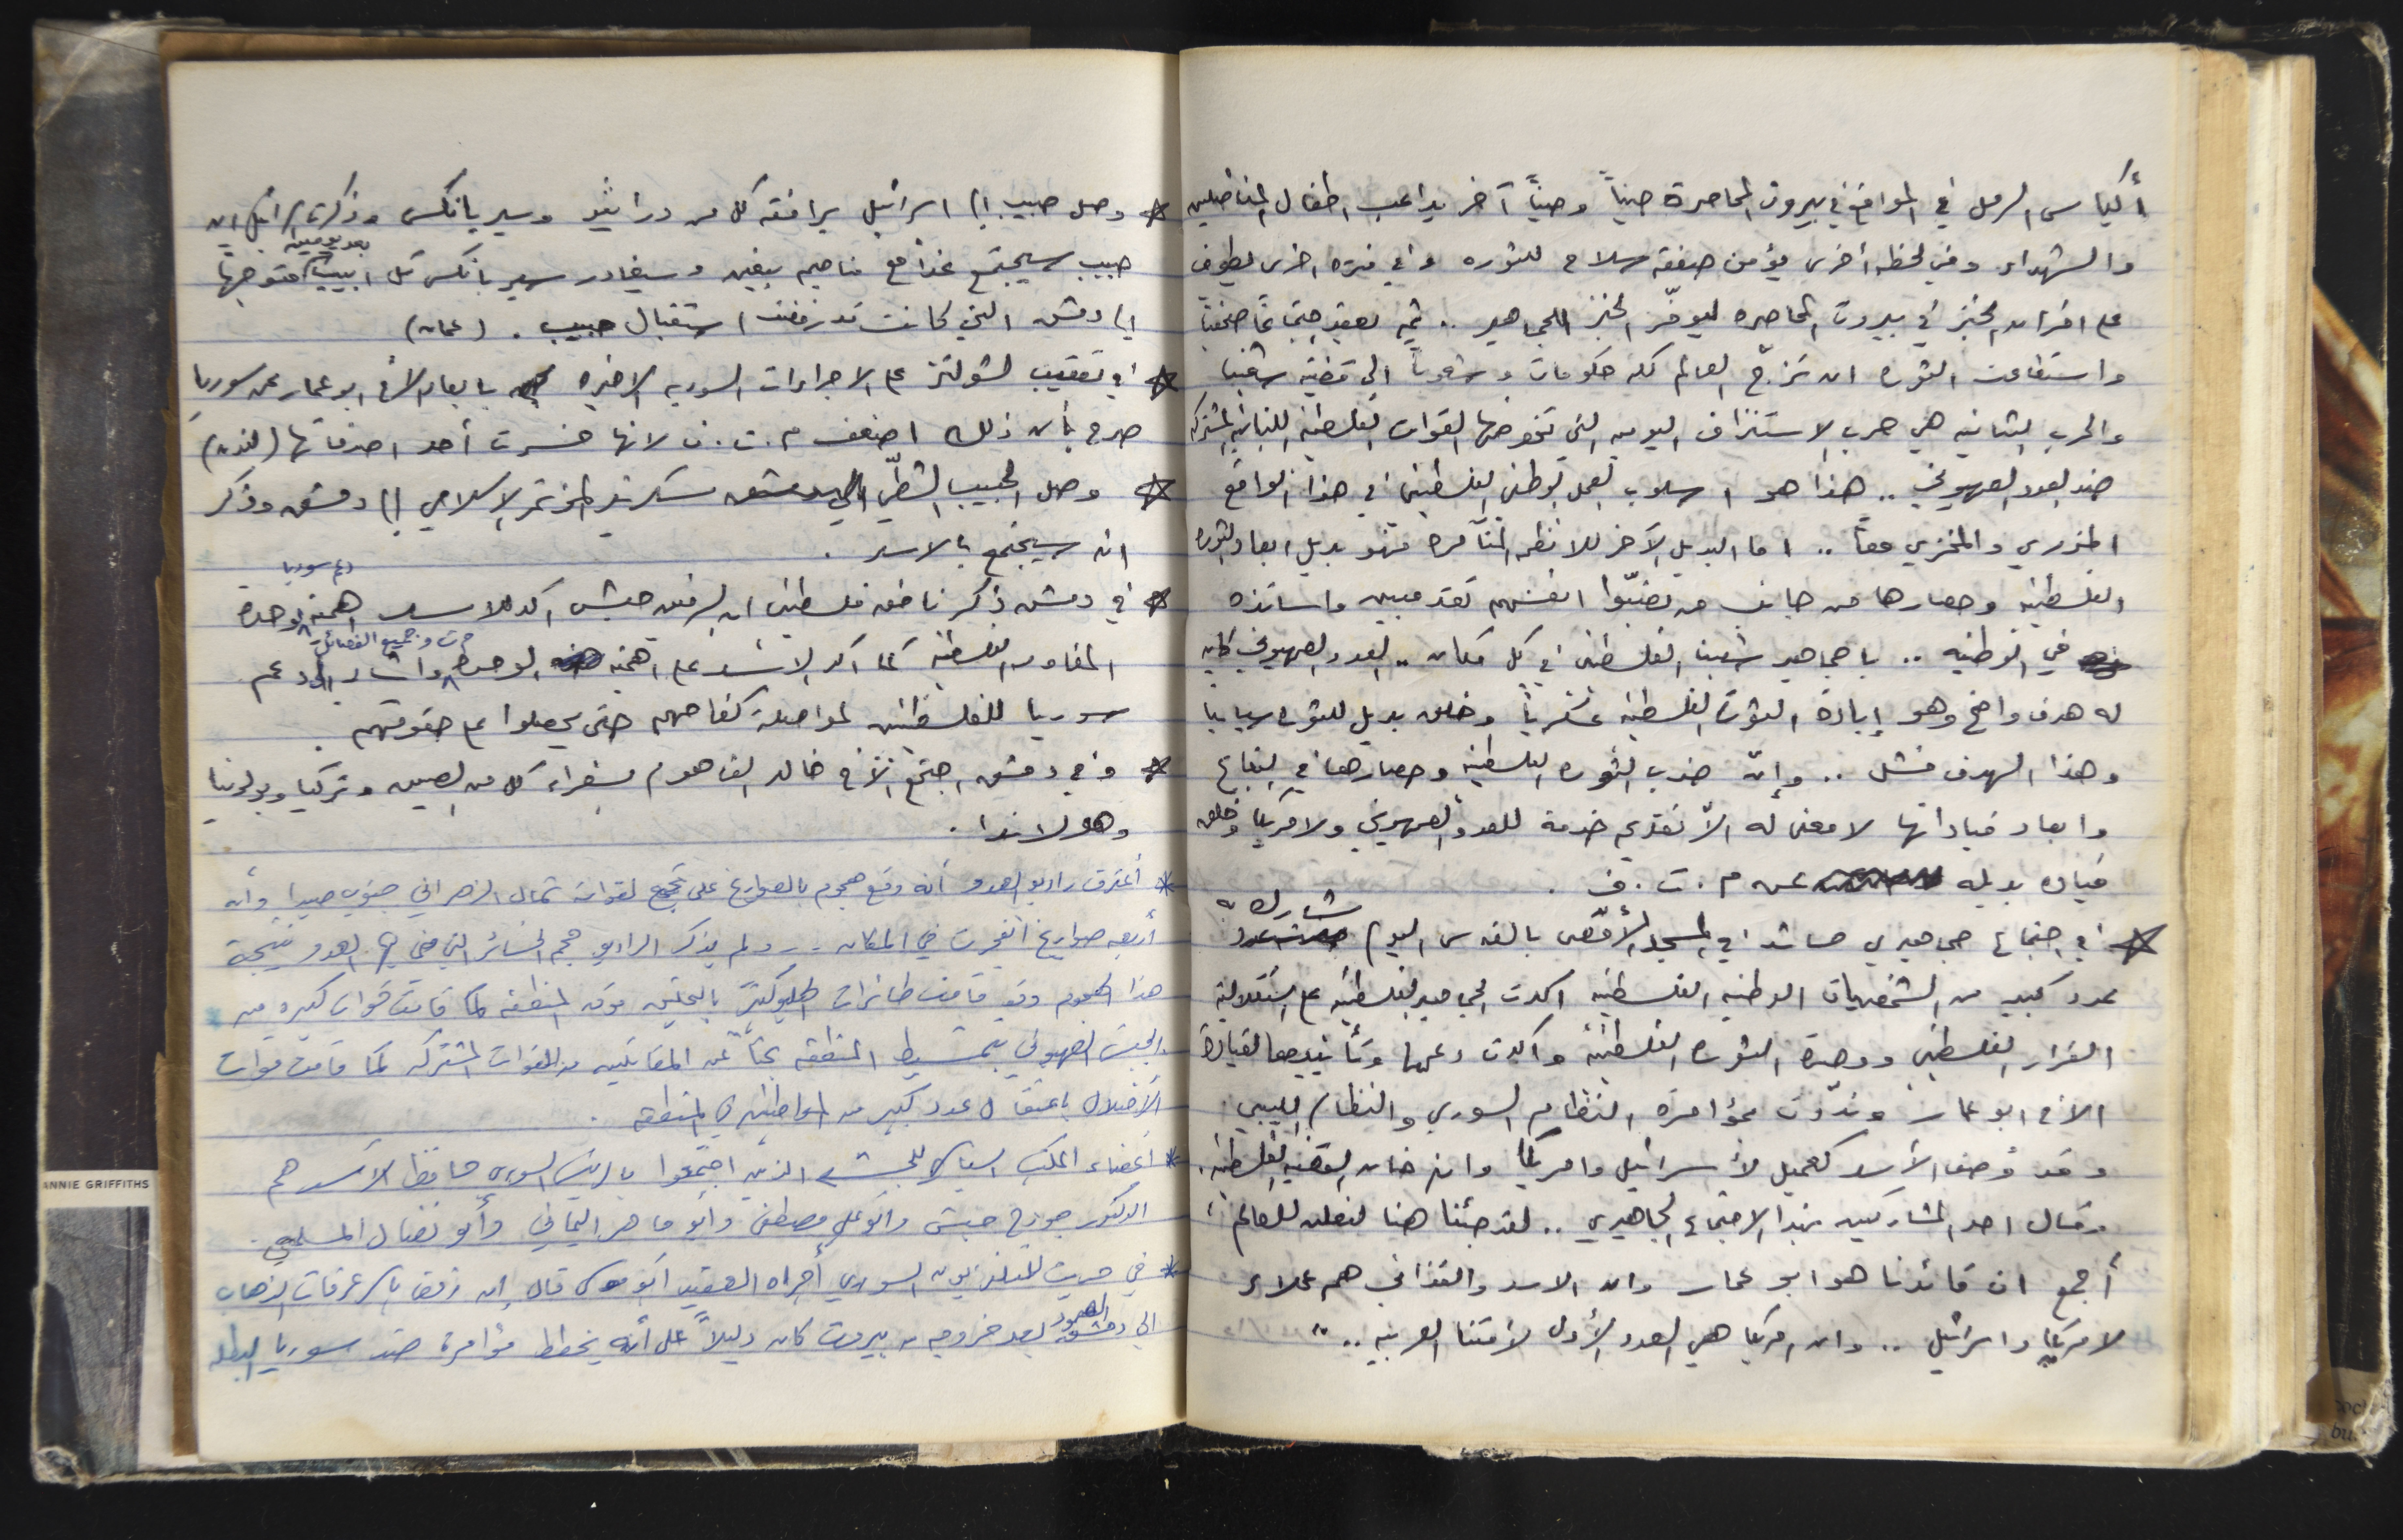 أكياس الرمل في المواقع في بيروت المحاصرة حيناً وحيناً آخر يداعب اطفال المناضلين
والشهداء وفي لحظه أخرى يؤمن صفقه سلاح للثوره وفي فتره اخرى يطوف
على افران الخبز في بيروت المحاصره ليوفّر الخبز للجماهير .. ثم يعقد اجتماعًا صحفياً
واستطاعت الثوره ان تزجّ العالم كله حكومات وشعوباً الى قضية شعبنا
والحرب الثانيه هي حرب الاستنزاف اليوميه التي تخوضها القوات الفلسطينيه اللبنانيه المشتركه
ضد العدو الصهيوني .. هذا هو اسلوب العمل الوطني الفلسطيني في هذا الواقع
المزري والمخزي معاً .. اما البديل الآخر للانظمه المتآمره فهو بديل ابعاد الثوره
الفلسطينيه وحصارها من جانب من نصّبوا انفسهم تقدميين واساتذه
في الوطنيه .. يا جماهير شعبنا الفلسطيني في كل مكان .. العدو الصهيوني كان
له هدف واضح وهو إبادة الثوره الفلسطينيه عسكرياً وخلق بديل للثوره سياسياً
وهذا الهدف فشل .. وإنّ ضرب الثوره الفلسطينيه وحصارها في البقاع
وابعاد قياداتها لا معنى له الاّ تقديم خدمة للعدو الصهيوني ولامريكا وخلق
قياده بديله عن م . ت . ف .
* في اجتماع جماهيري حاشد في المسجد الأقصى بالقدس اليوم شارك به
عدد كبير من الشخصيات الوطنيه الفلسطينيه اكدت الجماهير الفلسطينيه على استقلالية
القرار الفلسطيني ووحدة الثوره الفلسطينيه واكدت دعمها وتأييدها لقيادة
الاخ ابو عمار ونددت بمؤامرة النظام السوري والنظام الليبي
وقد وُصف الأسد كعميل لأسرائيل وامريكا وانه خان القضيه الفلسطينيه .
وقال احد المشاركين بهذا الاجتماع الجماهيري .. لقد جئنا هنا لنعلن للعالم
أجمع ان قائدنا هو ابو عمار وان الاسد والقذافي هم عملاء
لامريكا واسرائيل .. وان امريكا هي العدو الأول لأمتنا العربيه .. "
* وصل حبيب الى اسرائيل يرافقه كل من درابر وسير بانكس وذكرت اسرائيل ان
حبيب سيجتمع غداً مع مناحيم بيغن وسيغادر سير بانكس تل ابيب بعد يومين متوجهاً
الى دمشق التي كانت قد رفضت استقبال حبيب . (عمان)
* في تعقيب لشولتز على الاجراءات السوريه الاخيره بابعاد الأخ ابو عمار عن سوريا
صرح بأن ذلك اضعف م . ت . ف لانها خسرت أحد اصدقائها (لندن)
* وصل الحبيب الشطّي سكرتير المؤتمر الاسلامي الى دمشق وذكر
انه سيجتمع بالاسد .
* في دمشق ذكر ناطق فلسطيني ان الرفيق حبش اكد للاسد اهمية دعم سوريا لوحدة
المقاومه الفلسطينيه كما اكد الاسد على اهمية الوحده م ت ف وجميع الفصائل واشار الى دعم
سوريا للفلسطينيين لمواصلة كفاحهم حتى يحصلوا على حقوقهم .
* وفي دمشق اجتمع الأخ خالد الفاهوم بسفراء كل من الصين وتركيا وبولونيا
وهولاندا .
* أعترف راديو العدو أنه وقع هجوم بالصواريخ على تجمع لقواته شمال الزهراني جنوب صيدا وأن
أربعه صواريخ انفجرت في المكان .. ولم يذكر الراديو حجم الخسائر التي مني بها العدو نتيجة
هذا الهجوم وقد قامت طائرات الهليوكبتر بالتحليق فوق المنطقه كما قامت قوات كبيره من
الجيش الصهيوني بتمشيط المنطقه بحثاً عن المقاتلين من القوات المشتركه كما قامت قوات
الأحتلال باعتقال عدد كبير من المواطنين في المنطقه .
* اعضاء المكتب السياسي للجبهة الذين اجتمعوا بالرئيس السوري حافظ الأسد هم
الدكتور جورج حبش وأبو علي مصطفى وأبو ماهر اليماني وأبو نضال المسلمي .
* في حديث للتلفزيون السوري أجراه العقيد ابو موسى قال إن رفض ياسر عرفات الذهاب
الى دمشق الصمود بعد خروجه من بيروت كان دليلاً على أنه يخطط مؤامرة ضد سوريا البطله
ANNIE GRIFFITHS